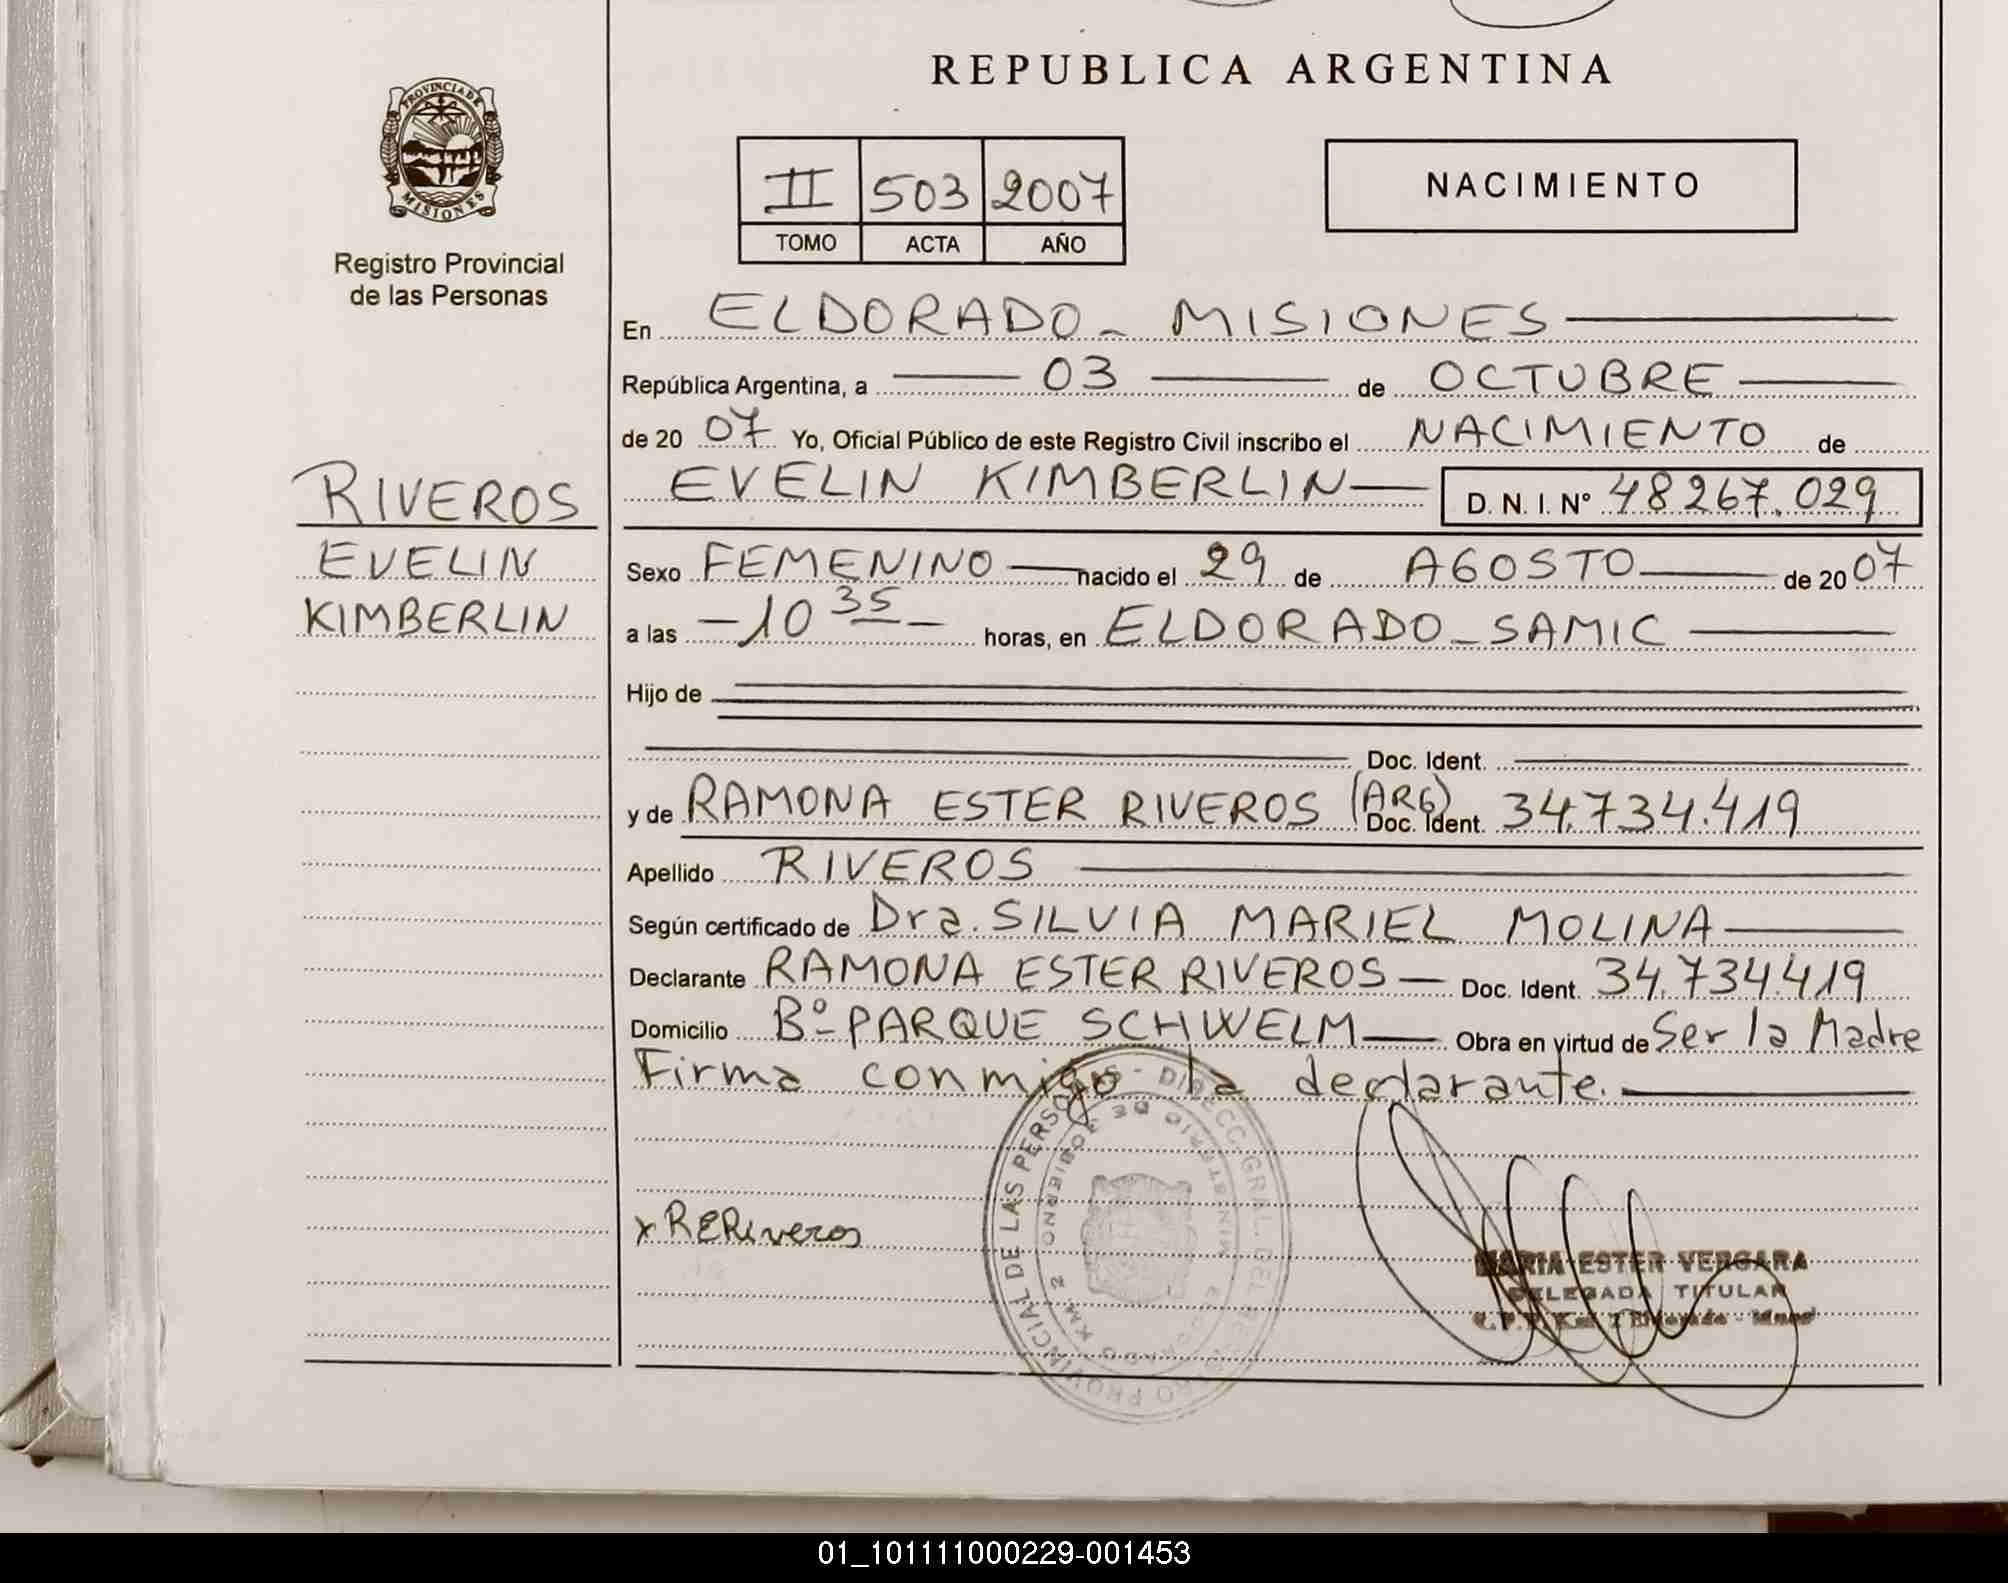 REPUBLICA ARGENTINA
PROVINCIA DE
MISIONES
Registro Provincial
de las Personas
II 503 2007
TOMO ACTA AÑO
NACIMIENTO
En ELDORADO - MISIONES
República Argentina, a 03 de OCTUBRE
de 20 07 Yo, Oficial Público de este Registro Civil inscribo el NACIMIENTO de
RIVEROS
EVELIN
KIMBERLIN
EVELIN KIMBERLIN D. N. I. Nº 48267.029
Sexo FEMENINO nacido el 29 de AGOSTO de 20 07
a las - 10 35 - horas, en ELDORADO - SAMIC
Hijo de
Doc. Ident.
y de RAMONA ESTER RIVEROS (ARG) Doc. Ident. 34.734.419
Apellido RIVEROS
Según certificado de Dra. SILVIA MARIEL MOLINA
Declarante RAMONA ESTER RIVEROS Doc. Ident. 34.734419
Domicilio Bº PARQUE SCHWELM Obra en virtud de Ser la Madre
Firma conmigo la declarante.
x RERiveros
PROVINCIAL DE LAS PERSONAS - DIRECC. GRAL. DEL REGISTRO
MINISTERIO DE GOBIERNO
ELDORADO KM 2
MARIA ESTER VERGARA
DELEGADA TITULAR
Eldorado - Mnes
01_101111000229-001453